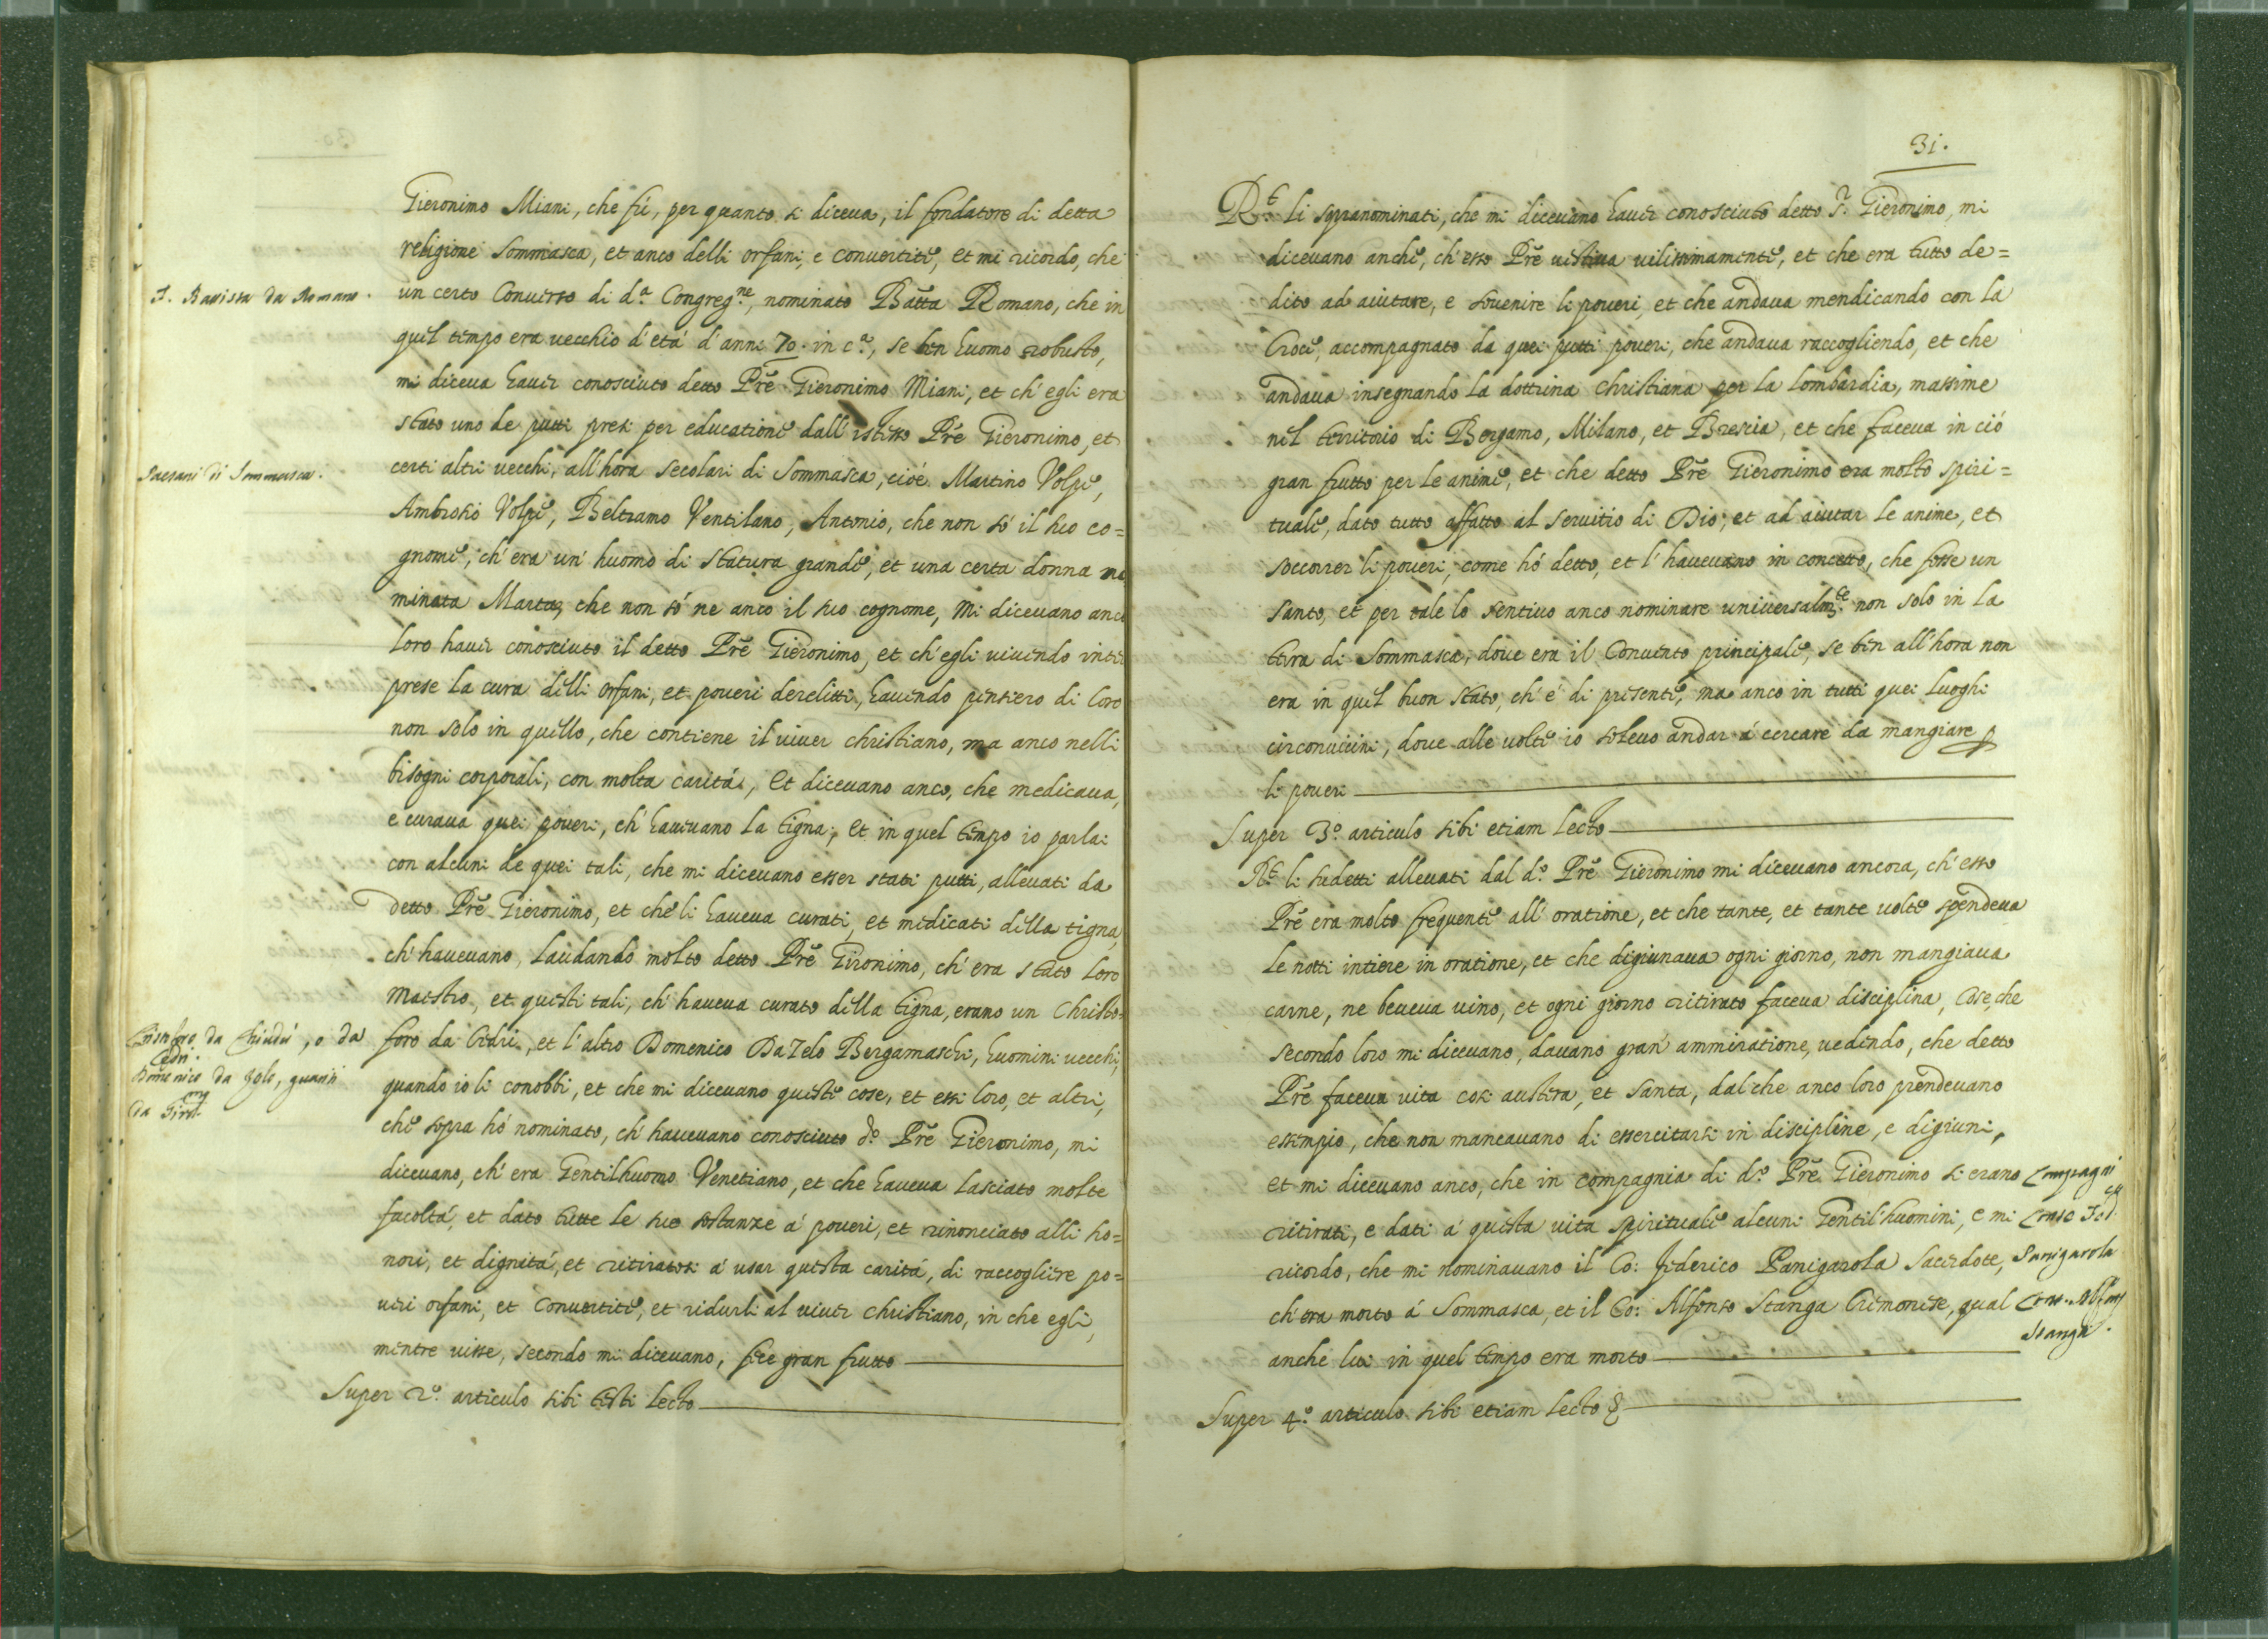 Gieronimo Miani, che fù, per quanto si diceua, il fondatore di detta
religione Sommasca, et anco delli orfani, e conuertite, et mi ricordo, che
F. Battista da Romano.
un certo Conuerso di d.ª Congreg.ne, nominato Batta Romano, che in
quel tempo era uecchio d'età d'anni 70. in c.ª, se ben huomo robusto,
mi diceua hauer conosciuto detto Prē Gieronimo Miani, et ch'egli era
stato uno de putti presi per educatione dall'istesso Prē Gieronimo, et
Paesani di Sommasca.
certi altri uecchi, all'hora secolari di Sommasca, cioè Martino Volpe,
Ambrosio Volpe, Beltramo Ventilano, Antonio, che non sò il suo co=
gnome, ch'era un'huomo di statura grande, et una certa donna no
minata Marta, che non sò ne anco il suo cognome, mi diceuano anco
loro hauer conosciuto il detto Prē Gieronimo, et ch'egli uiuendo inte
prese la cura delli orfani, et poueri derelitti, hauendo pensiero di loro
non solo in quello, che contiene il uiuer christiano, ma anco nelli
bisogni corporali, con molta carità, et diceuano anco, che medicaua,
e curaua quei poueri, ch'haueuano la tigna, et in quel tempo io parlai
con alcuni de quei tali, che mi diceuano esser stati putti, alleuati da
detto Prē Gieronimo, et che li haueua curati, et medicati della tigna,
ch'haueuano, laudando molto detto Prē Gironimo, ch'era stato loro
maestro, et questi tali, ch'haueua curato della tigna, erano un Christo=
Cristoforo da Chiudù, o da
Cedri.
foro da Cedri, et l'altro Domenico Da Zelo Bergamaschi, huomini uecchi,
Domenico da Zelo, guariti
da Giro.mo
quando io li conobbi, et che mi diceuano queste cose, et essi loro, et altri,
che sopra hò nominato, ch'haueuano conosciuto d.º Prē Gieronimo, mi
diceuano, ch'era Gentilhuomo Venetiano, et che haueua lasciato molte
facoltà, et dato tutte le sue sostanze à poueri, et rinonciato alli ho=
nori, et dignità, et ritiratosi à usar questa carità, di raccogliere po=
ueri orfani, et conuertite, et ridurli al uiuer christiano, in che egli,
mentre uisse, secondo mi diceuano, fece gran frutto
Super 2.º articulo sibi testi lecto
31.
R.t li sopranominati, che mi diceuano hauer conosciuto detto S.r Gieronimo, mi
diceuano anche, ch'esso Prē uestiua uilissimamente, et che era tutto de=
dito ad aiutare, e souenire li poueri, et che andaua mendicando con la
Croce, accompagnato da quei putti poueri, che andaua raccogliendo, et che
andaua insegnando la dottrina christiana per la Lombardia, massime
nel territorio di Bergamo, Milano, et Brescia, et che faceua in ciò
gran frutto per le anime, et che detto Prē Gieronimo era molto spiri=
tuale, dato tutto affatto al seruitio di Dio, et ad aiutar le anime, et
soccorrer li poueri, come hò detto, et l'haueuano in concetto, che fosse un
santo, et per tale lo sentiuo anco nominare uniuersalm.te non solo in la
terra di Sommasca, doue era il Conuento principale, se ben all'hora non
era in quel buon stato, ch'è di presente, ma anco in tutti quei luoghi
circonuicini, doue alle uolte io soleuo andar à cercare da mangiare p
li poueri
Super 3.º articulo sibi etiam lecto
R.t li sudetti alleuati dal d.º Prē Gieronimo mi diceuano ancora, ch'esso
Prē era molto frequente all'oratione, et che tante, et tante uolte spendeua
le notti intiere in oratione, et che digiunaua ogni giorno, non mangiaua
carne, ne beueua uino, et ogni giorno ritirato faceua disciplina, Cose, che
secondo loro mi diceuano, dauano gran ammiratione, uedendo, che detto
Prē faceua uita cosi austera, et santa, dal che anco loro prendeuano
essempio, che non mancauano di essercitarsi in discipline, e digiuni,
et mi diceuano anco, che in compagnia di d.º Prē Gieronimo si erano
Compagni
ritirati, e dati à questa uita spirituale alcuni Gentil'huomini, e mi
Conte Fed.co
ricordo, che mi nominauano il Co: Federico Panigarola Sacerdote,
Panigarola
ch'era morto à Sommasca, et il Co: Alfonso Stanga Cremonese, qual
Conte Alfonso
Stanga.
anche lui in quel tempo era morto
Super 4.º articulo sibi etiam lecto